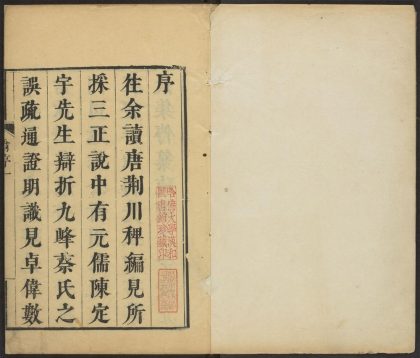 序
徃余讀唐荆川稗編見所
採三正說中有元儒陳定
宇先生辯折九峰蔡氏之
誤疏通證明識見卓偉數